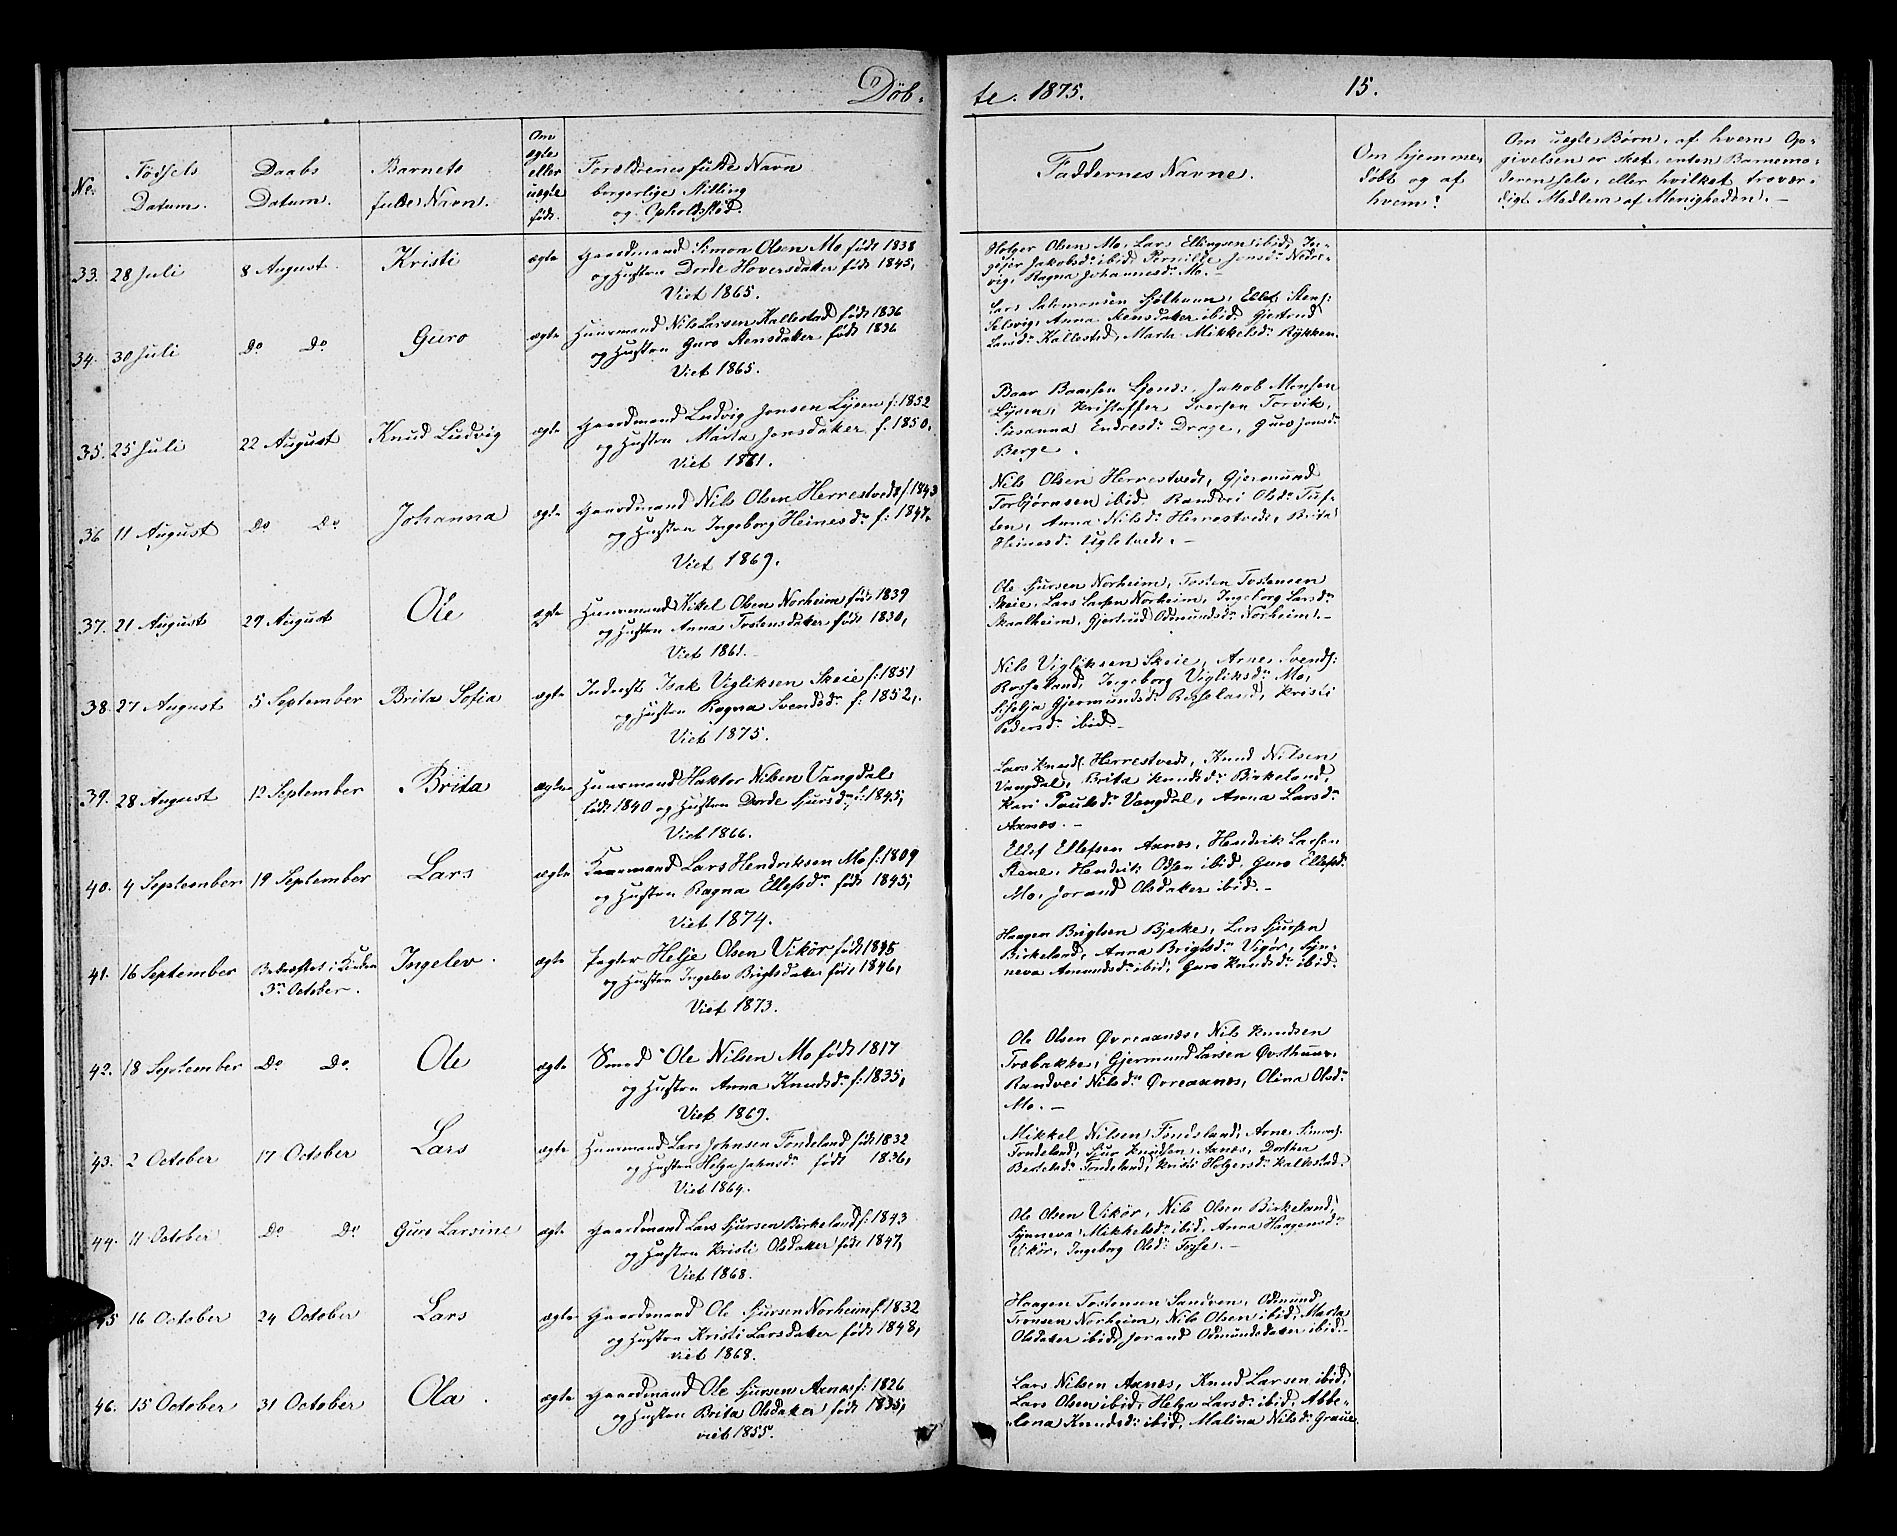 Döb-
te. 1875.
15.
No.
Fødsels
Datum.
Daabs
Datum.
Barnets
fulde Navn.
Om
ægte
eller
uægte
født.
Forældrenes fulde Navn
borgerlige Stilling
og Opholdsted.
Faddernes Navne.
Om hjemme-
døbt og af
hvem?
Om uægte Børn, af hvem Op-
givelsen er sket, enten Barnemo-
deren selv, eller hvilket trovær-
digt Medlem af Menigheden. –
33. 28 Juli 8 August Kristi ægte Gaardmand Simon Olsen Mo født 1838
og Hustru Dorde Hoversdatter født 1845,
Viet 1865.
Holger Olsen Mo, Lars Ellingsen ibid, In-
gejer Jakobsdr ibid, Pernilde Jonsdr Nedre-
vig, Ragna Johannesdr Mo. –
34. 30 Juli Do Do Guro ægte Huusmand Nils Larsen Kallestad født 1836
og Hustru Guro Stensdatter født 1836
Viet 1865.
Lars Salomonsen Fjölhuun, Ellef Stens:
Selsvig, Anna Stensdatter ibid, Gjertrud
Larsdr Kallestad, Marta Mikkelsdr Rykken.
35. 25 Juli 22 August Knud Ludvig ægte Gaardmand Ludvig Jonsen Lysen f: 1852
og Hustru Märta Jonsdatter f: 1850,
Viet 1871.
Baar Baarsen Gjens, Jakob Monsen
Lysen, Kristoffer Iversen Torvik,
Susanna Endresdr Drage, Guro Jonsdr
Berge.
36 11 August Do Do Johanna ægte Gaardmand Nils Olsen Herrestvedt f. 1843
og Hustru Ingeborg Heinesdr f: 1847,
Viet 1869.
Nils Olsen Herrestvedt, Gjermund
Torbjörnsen ibid Randvei Olsdr Tuf-
ten, Anna Nilsdr Herrestvedt, Brita
Heinesdr Ugletvedt. –
37. 21 August 29 August Ole ægte Huusmand Kittel Olsen Norheim født 1839
og Hustru Anna Tostensdatter født 1830,
Viet 1861. –
Ole Sjursen Norheim, Tosten Tostensen
Skeie, Lars Larsen Norheim, Ingeborg Larsdr
Skaalheim, Gjertrud Odmundsdr Norheim. –
38. 27 August 5 September Brita Sofia ægte Inderst Isak Vigliksen Skeie f: 1851
og Hustru Ragna Svendsdr f: 1852,
Viet 1875.
Nils Vigliksen Skeie, Arne Svends:
Rosseland, Ingeborg Vigliksdr Mo,
Siselja Gjermundsdr Rosseland, Kristi
Pedersdr ibid. –
39. 28 August 12 September Brita ægte Huusmand Haktor Nilsen Vangdal
født 1840 og Hustru Dorde Sjursdr f: 1845,
Viet 1866.
Lars Knudsf Herrestvedt, Knud Nilsen
Vangdal, Brita Knudsdr Birkeland,
Kari Poulsdr Vangdal, Anna Larsdr
Axnæs. –
40. 4 September 19 September Lars ægte Kaarmand Lars Hendriksen Mo f: 1809
og Hustru Ragna Ellefsdr født 1845,
Viet 1874.
Ellef Ellefsen Axnæs, Hendrik Larsen
Stene, Hendrik Olsen ibid, Guro Ellefsdr
Mo, Jorand Olsdatter ibid. –
41. 16 September Bekræftet i Kirken
3die October. Ingelev. ægte Helje Olsen Vikör født 1845
og Hustru Ingelev Brigtsdatter født 1846,
Viet 1873.
Haagen Brigtsen Bjerke, Lars Sjursen
Birkeland, Anna Brigtsdr Vigör, Syn-
neva Amundsdr ibid, Guro Knudsdr ibid.
42. 18 September Do Do. Ole ægte Smed Ole Nilsen Mo født 1817
og Hustru Anna Knudsdr f: 1835,
Viet 1869.
Ole Olsen Övreaxnæs, Nils Knudsen
Træbakke, Gjermund Larsen Östhuus,
Randvei Nilsdr Övreaxnæs, Olina Olsdr
Mo. –
43. 2 October 17 October Lars ægte Huusmand Lars Johnsen Tondeland født 1832
og Hustru Helga Johnsdr født 1836,
Viet 1864.
Mikkel Nilsen Tondeland, Arne Simons:
Tondeland, Sjur Knudsen Axnæs, Dorthea
Bertelsdr Tondeland, Kristi Holgersdr Kallestad.
44. 11 October Do Do Guro Larsine ægte Gaardmand Lars Sjursen Birkeland f: 1843
og Hustru Kristi Olsdatter født 1847,
Viet 1868.
Ole Olsen Vikör, Nils Olsen Birkeland,
Synneva Mikkelsdr ibid, Anna Haagensdr
Vikör, Ingeborg Olsdr Tosse. –
45 16 October 24 October Lars ægte Gaardmand Ole Sjursen Norheim f: 1832
og Hustru Kristi Larsdatter født 1848,
viet 1868.
Haagen Tostensen Sandven, Odmund
Tronsen Norheim, Nils Olsen ibid, Marta
Olsdatter ibid, Jorand Odmundsdatter ibid. –
46. 15 October 31 October Ola. ægte Gaardmand Ole Sjursen Axnæs f: 1826
og Hustru Brita Olsdatter født 1835,
viet 1855.
Lars Nilsen Axnæs, Knud Larsen ibid,
Lars Olsen ibid, Helga Larsdr ibid, Abbe-
lona Knudsdr ibid, Malina Nilsdr Graue.